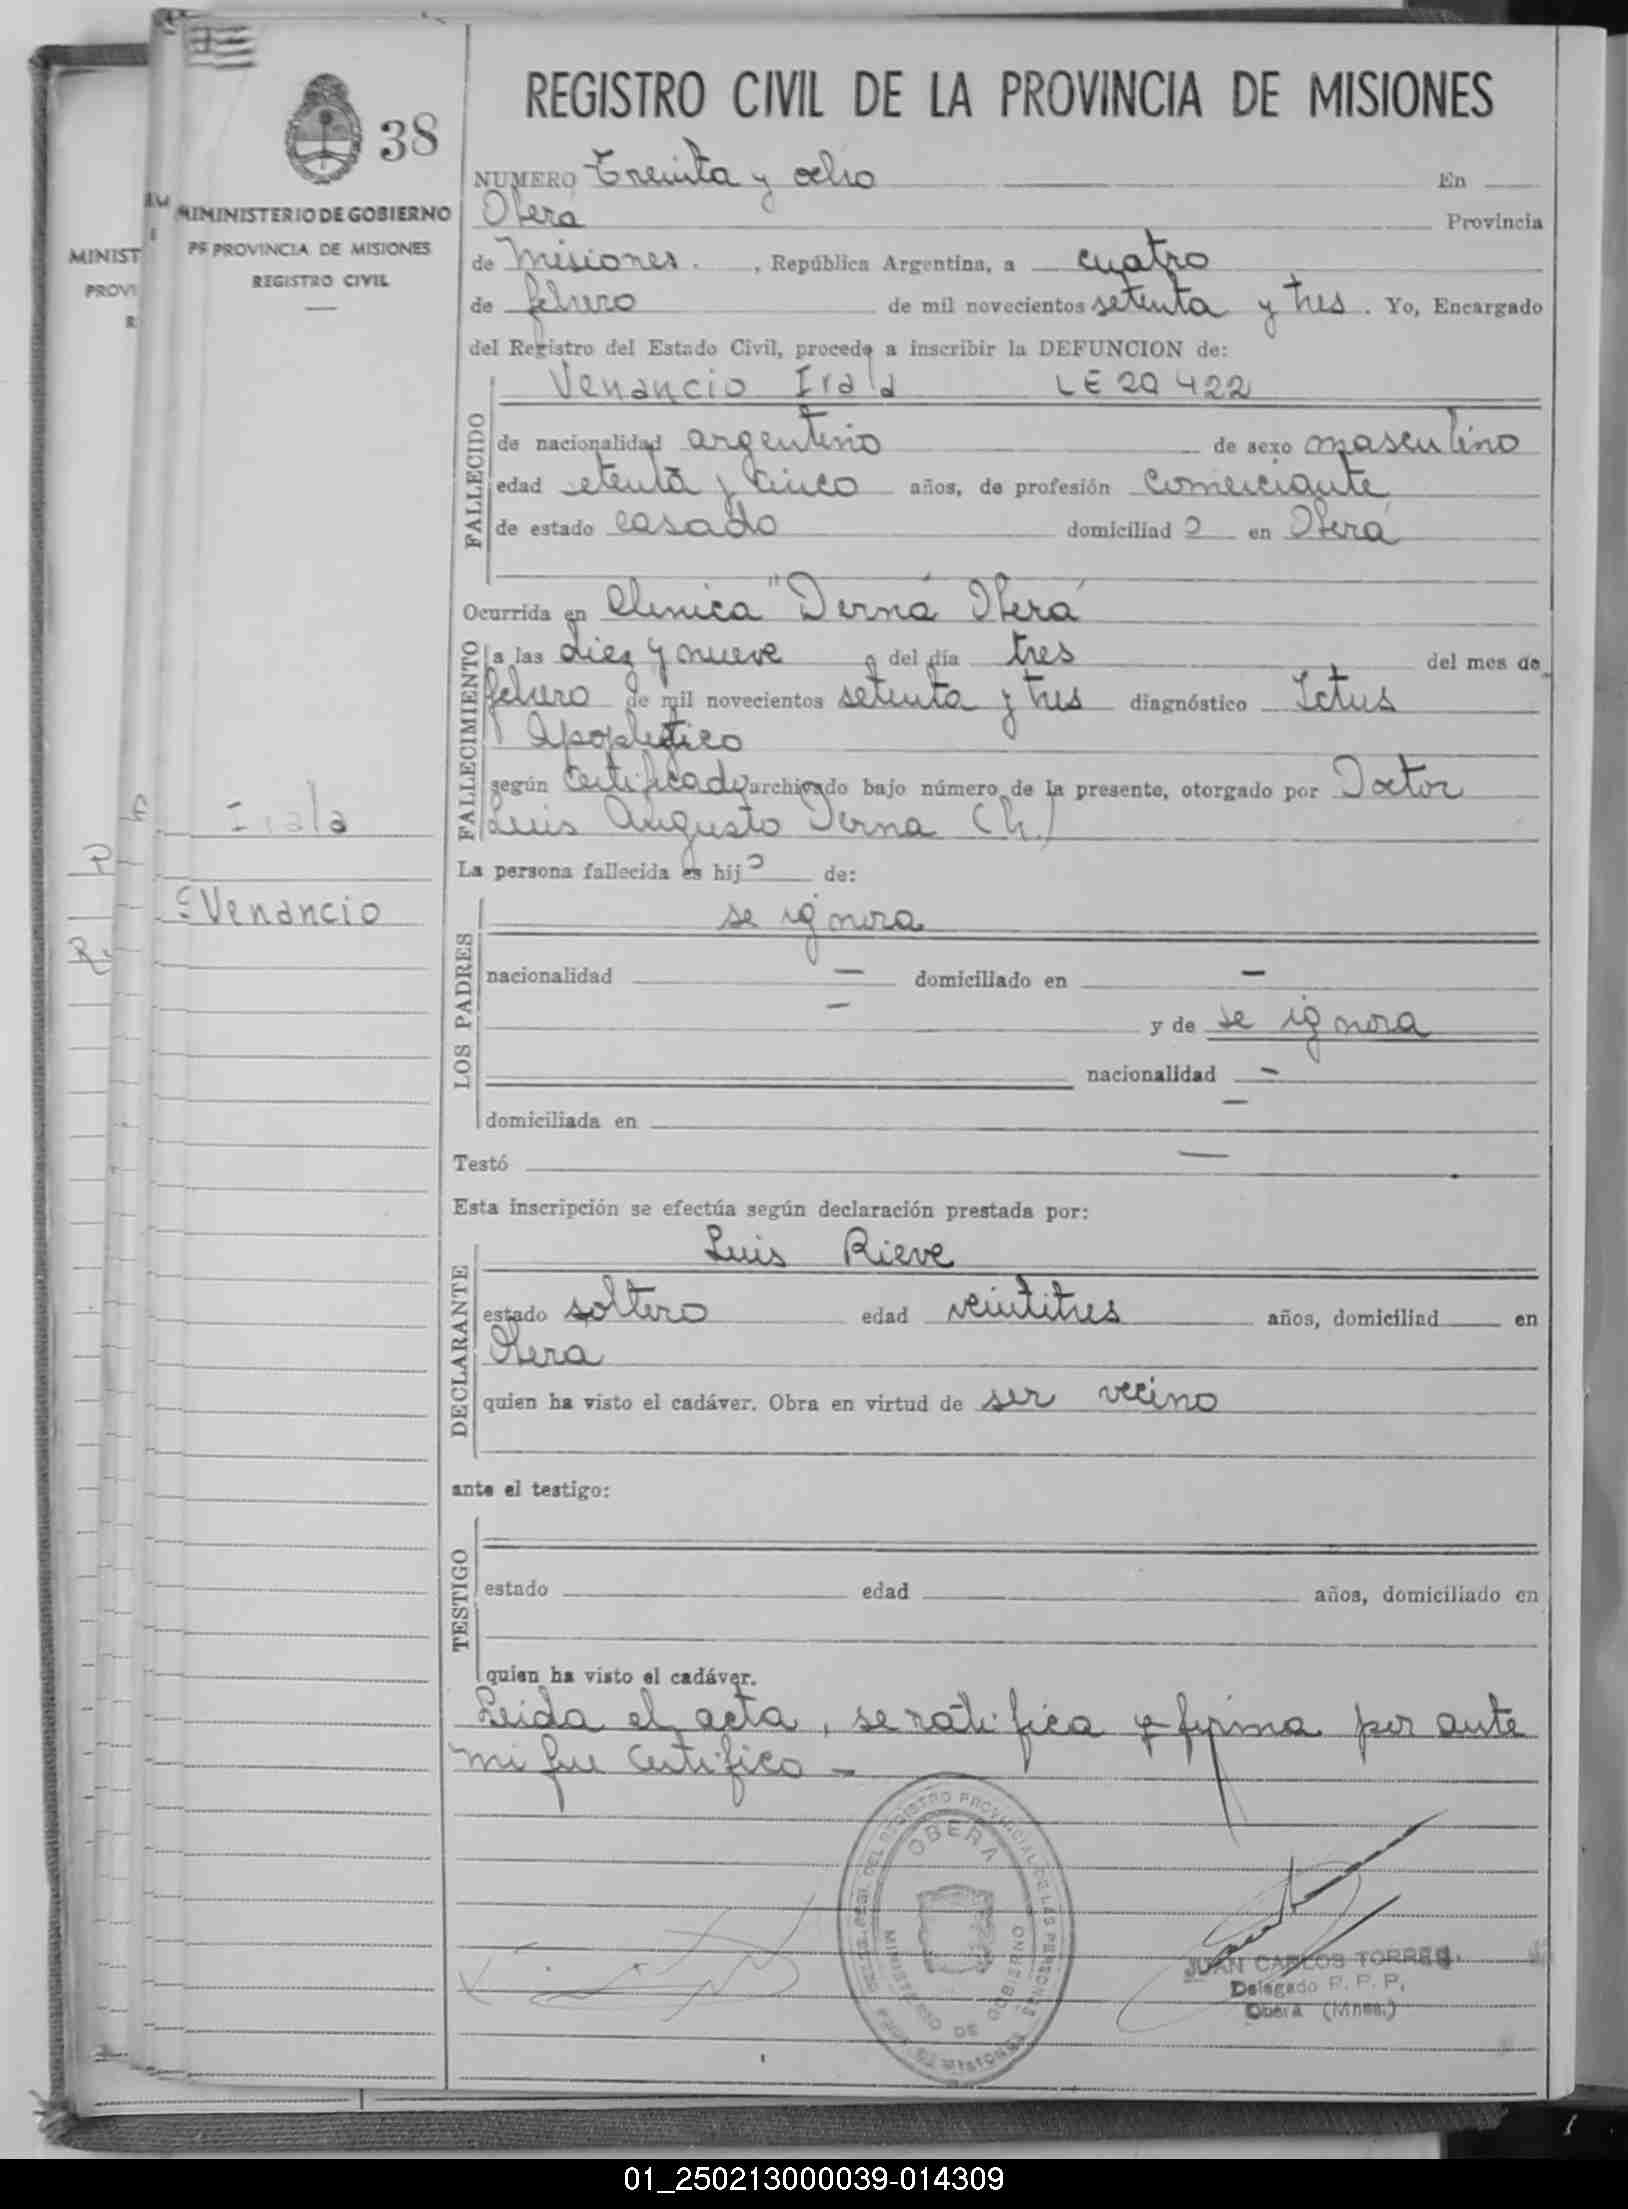 REGISTRO CIVIL DE LA PROVINCIA DE MISIONES
38
MINISTERIO DE GOBIERNO
PROVINCIA DE MISIONES
REGISTRO CIVIL
MINIST
PROVI
R
NUMERO Treinta y ocho En
Oberá Provincia
de Misiones. , República Argentina, a cuatro
de febrero de mil novecientos setenta y tres. Yo, Encargado
del Registro del Estado Civil, procedo a inscribir la DEFUNCION de:
FALLECIDO
Venancio Irala LE 20 422
de nacionalidad argentino de sexo masculino
edad setenta y cinco años, de profesión comerciante
de estado casado domiciliad o en Oberá
Ocurrida en Clinica "Derna" Oberá
FALLECIMIENTO
a las diez y nueve del día tres del mes de
febrero de mil novecientos setenta y tres diagnóstico Ictus
Apopletico
según certificado archivado bajo número de la presente, otorgado por Doctor
Luis Augusto Derna (h)
Irala
Venancio
La persona fallecida es hij o de:
LOS PADRES
se ignora
nacionalidad — domiciliado en —
— y de se ignora
nacionalidad —
domiciliada en —
Testó —
Esta inscripción se efectúa según declaración prestada por:
DECLARANTE
Luis Rieve
estado soltero edad veintitres años, domiciliad en
Obera
quien ha visto el cadáver. Obra en virtud de ser vecino
ante el testigo:
TESTIGO
estado edad años, domiciliado en
quien ha visto el cadáver.
Leida el acta, se ratifica y firma por ante
mi que certifico —
REGISTRO PROVINCIAL DE LAS PERSONAS
OBERA
MINISTERIO DE GOBIERNO
MISIONES
JUAN CARLOS TORRES
Delegado R. P. P.
Oberá (Mnes.)
01_250213000039-014309